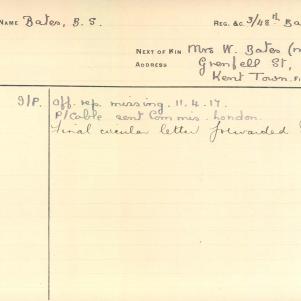 NAME Bates, B. S. REG. &C. 3/48th Ba
NEXT OF KIN Mrs W. Bates (m
ADDRESS Grenfell St,
Kent Town.
S/P. Off. rep. missing. 11.4.17.
P/Cable sent Commis. London.
Final circular letter forwarded